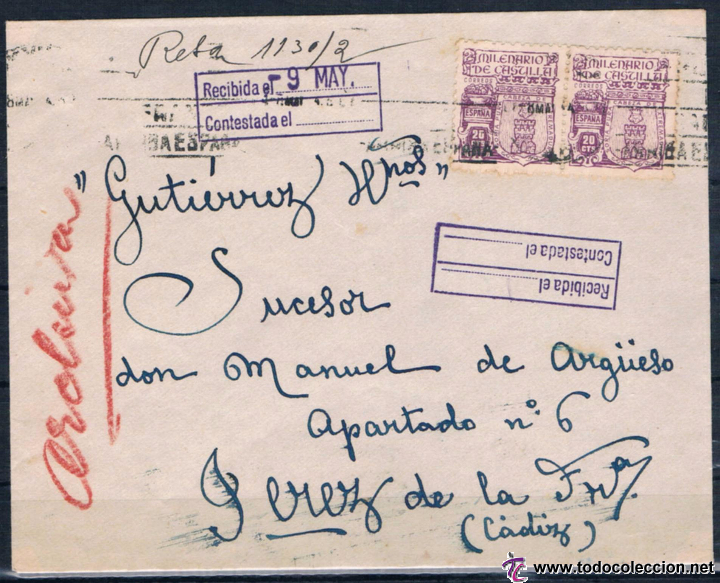 Reta 1130/2
Recibida el -9 MAY.
Contestada el
MILENARIO DE CASTILLA
CORREOS
ESPAÑA
20 CTS
MILENARIO DE CASTILLA
CORREOS
ESPAÑA
20 CTS
ARRIBA ESPAÑA
"Gutiérrez Hnos"
Sucesor
don Manuel de Argüeso
Apartado nº 6
Jerez de la Frª.
(Cádiz)
Recibida el
Contestada el
www.todocoleccion.net